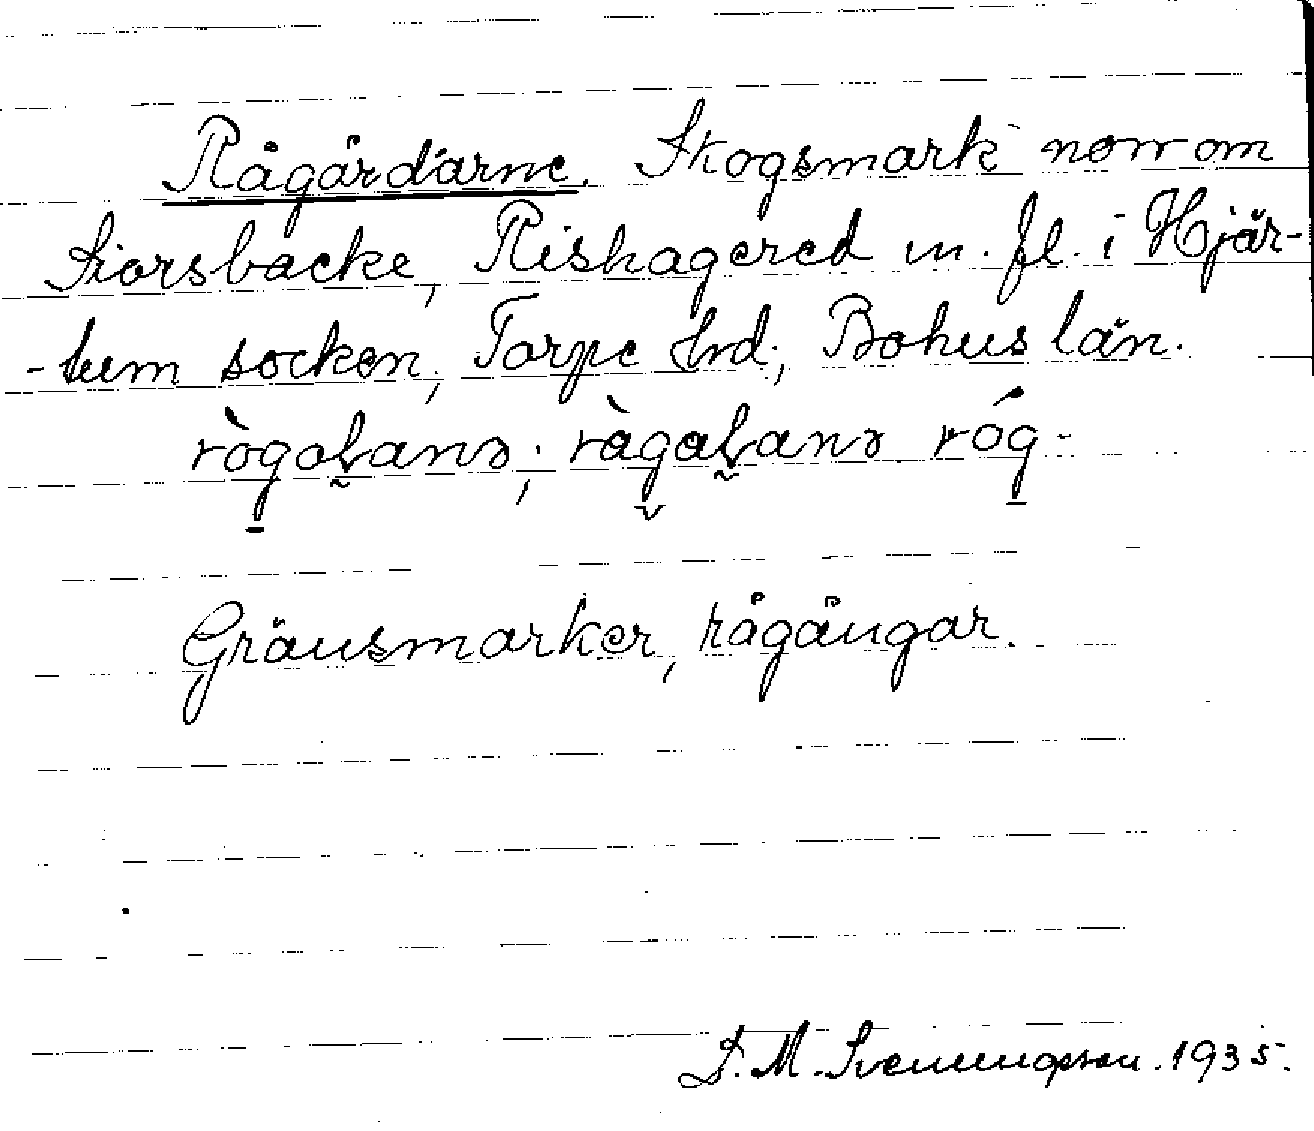 Rågårdarne. Skogsmark norr om
Kiorsbacke, Rishagered m. fl. i Hjär-
-tum socken, Torpe hrd, Bohus län.
Gränsmarker, rågångar.
S. M. Svenungsson. 1935.